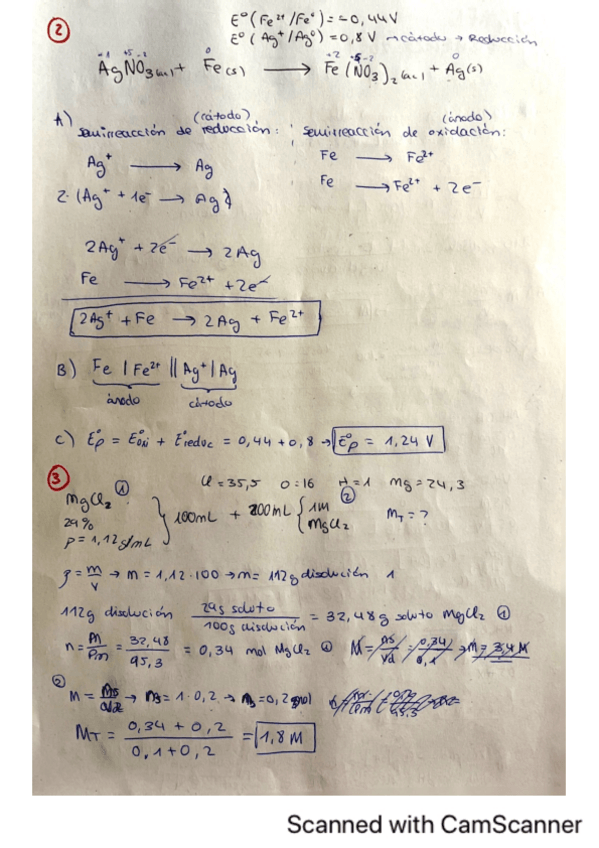 ②
E° (Fe²⁺/Fe°) = -0,44 V
E° (Ag⁺/Ag°) = 0,8 V → cátodo → Reducción
+1 +5 -2 0 +2 +5 -2 0
AgNO₃(ac) + Fe(s) ⟶ Fe(NO₃)₂(ac) + Ag(s)
A) (cátodo) (ánodo)
Semirreacción de reducción: Semirreacción de oxidación:
Ag⁺ ⟶ Ag Fe ⟶ Fe²⁺
2·(Ag⁺ + 1e⁻ → Ag) Fe ⟶ Fe²⁺ + 2e⁻
2Ag⁺ + 2e⁻ → 2Ag
Fe ⟶ Fe²⁺ + 2e⁻
2Ag⁺ + Fe → 2Ag + Fe²⁺
B) Fe | Fe²⁺ || Ag⁺ | Ag
ánodo cátodo
C) E°p = E°oxi + E°reduc = 0,44 + 0,8 → E°p = 1,24 V
③ Cl = 35,5 O = 16 H = 1 Mg = 24,3
MgCl₂ ①
29%
ρ = 1,12 g/mL
100mL + 200mL { 1M MgCl₂ ② M_T = ?
ρ = m/V → m = 1,12·100 → m = 112g disolución 1
112g disolución 29g soluto / 100g disolución = 32,48 g soluto MgCl₂ ①
n = m/Pm = 32,48/95,3 = 0,34 mol MgCl₂ ①
② M = ns/Vd → ns = 1·0,2 → ns = 0,2 mol
M_T = (0,34 + 0,2)/(0,1 + 0,2) = 1,8 M
Scanned with CamScanner